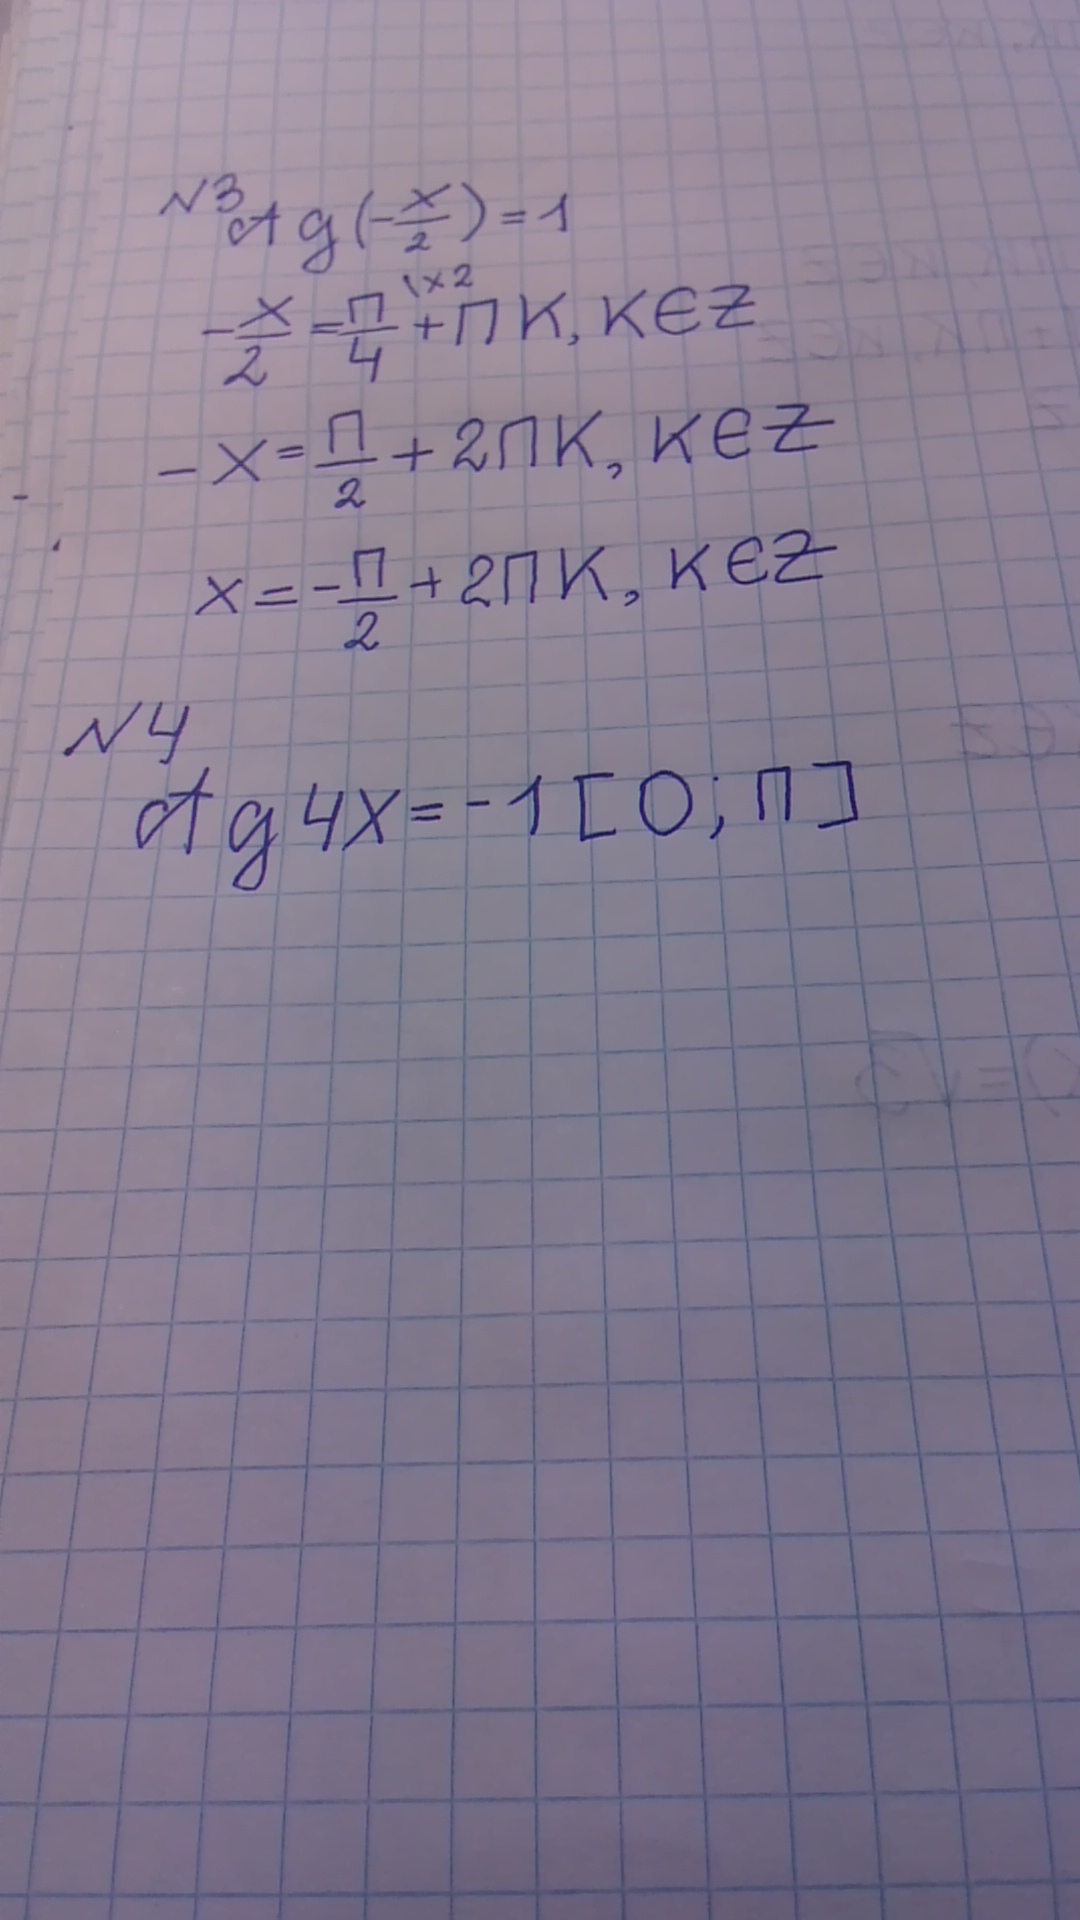 N3 ctg(-x/2)=1
-x/2=π/4+πK, K∈Z |x2
-x=π/2+2πK, K∈Z
x=-π/2+2πK, K∈Z
N4
ctg4x=-1[0;π]